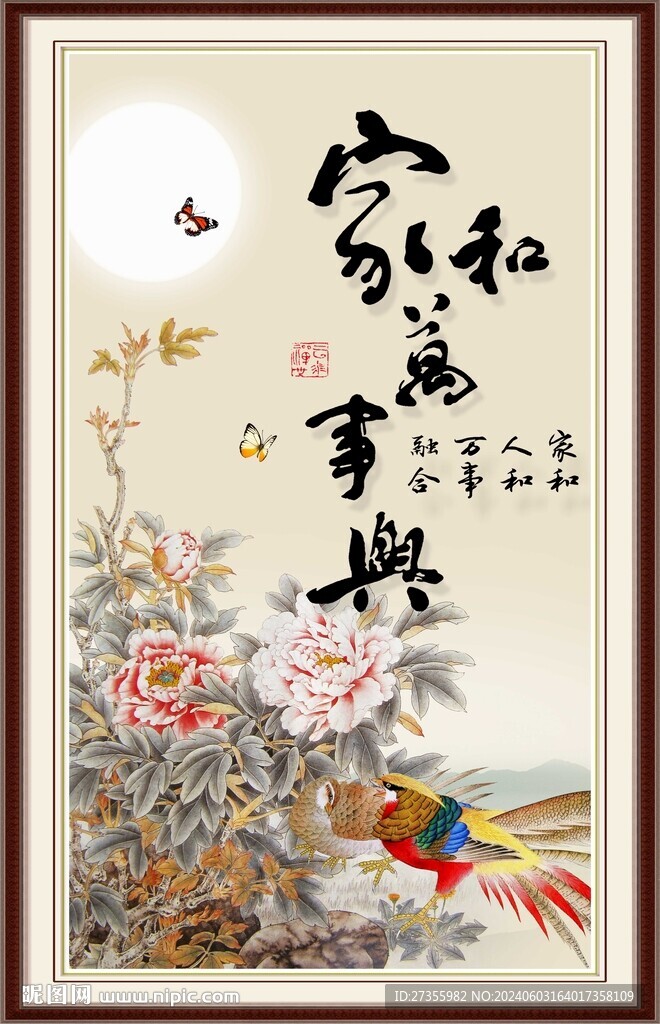 家和萬事興
家和
人和
万事
融合
昵图网 www.nipic.com
ID:27355982 NO:20240603164017358109